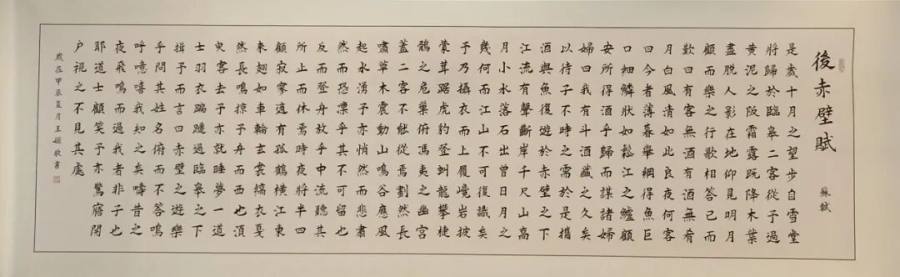 後赤壁賦
蘇軾
是歲十月之望步自雪堂
將歸於臨皋二客從予過
黃泥之阪霜露既降木葉
盡脫人影在地仰見明月
顧而樂之行歌相答已而
歎曰有客無酒有酒無肴
月白風清如此良夜何客
曰今者薄暮舉網得魚巨
口細鱗狀如松江之鱸顧
安所得酒乎歸而謀諸婦
婦曰我有斗酒藏之久矣
以待子不時之需於是攜
酒與魚復遊於赤壁之下
江流有聲斷岸千尺山高
月小水落石出曾日月之
幾何而江山不可復識矣
予乃攝衣而上履巉岩披
蒙茸踞虎豹登虯龍攀棲
鶻之危巢俯馮夷之幽宮
蓋二客不能從焉劃然長
嘯草木震動山鳴谷應風
起水湧予亦悄然而悲肅
然而恐凜乎其不可留也
反而登舟放乎中流聽其
所止而休焉時夜將半四
顧寂寥適有孤鶴橫江東
來翅如車輪玄裳縞衣戛
然長鳴掠予舟而西也須
臾客去予亦就睡夢一道
士羽衣蹁躚過臨皋之下
揖予而言曰赤壁之遊樂
乎問其姓名俯而不答嗚
呼噫嘻我知之矣疇昔之
夜飛鳴而過我者非子也
耶道士顧笑予亦驚寤開
戶視之不見其處
歲在甲辰夏月王敬書